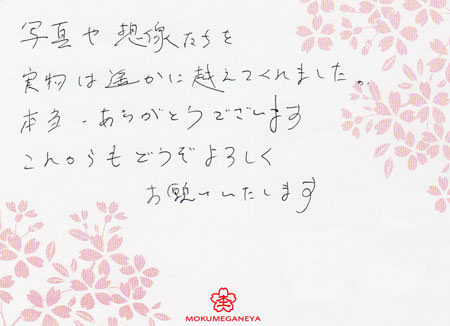 写真や想像たちを
実物は遥かに越えてくれました。
本当、ありがとうございます
こんごうもどうぞよろしく
お願いいたします
MOKUMEGANEYA